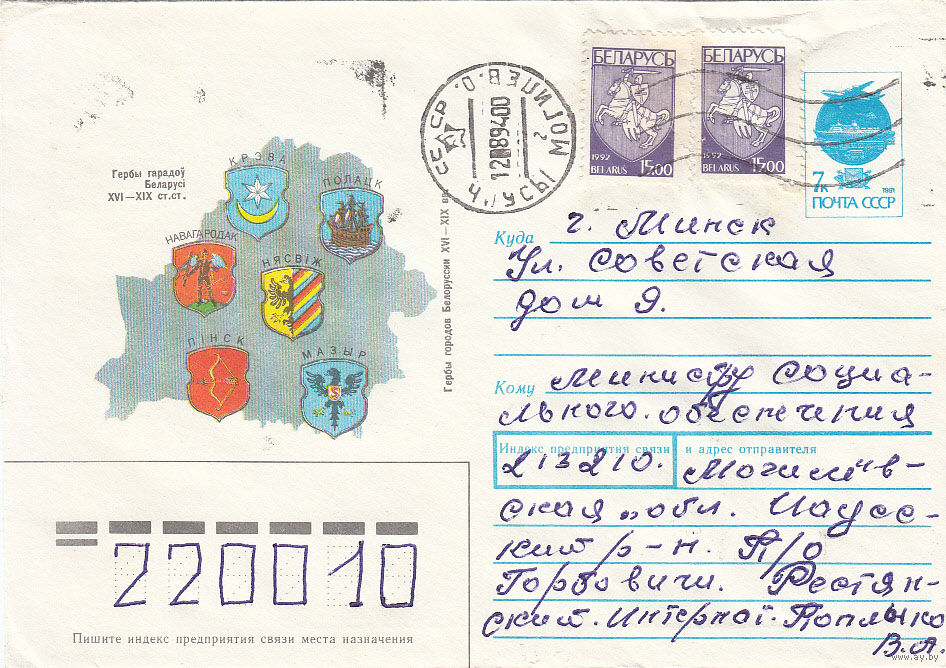 Гербы гарадоў
Беларусі
XVI–XIX ст.ст.
КРЭВА
ПОЛАЦК
НАВАГАРОДАК
НЯСВІЖ
ПІНСК
МАЗЫР
Гербы городов Белоруссии XVI–XIX вв.
СССР
ЧАУСЫ МОГИЛЕВ. О.
БЕЛАРУСЬ
1992
BELARUS 15.00
БЕЛАРУСЬ
1992
BELARUS 15.00
7к
1991
ПОЧТА СССР
Куда г. Минск
Ул. Советская
дом 9.
Кому Министру Социа-
льного. обеспечения
Индекс предприятия связи и адрес отправителя
213210. Могилёв-
ская обл. Чаусс-
кий р-н. П/О
Горбовичи. Рестян-
ский. Интернат.
В.А.
220010
Пишите индекс предприятия связи места назначения
www.ay.by